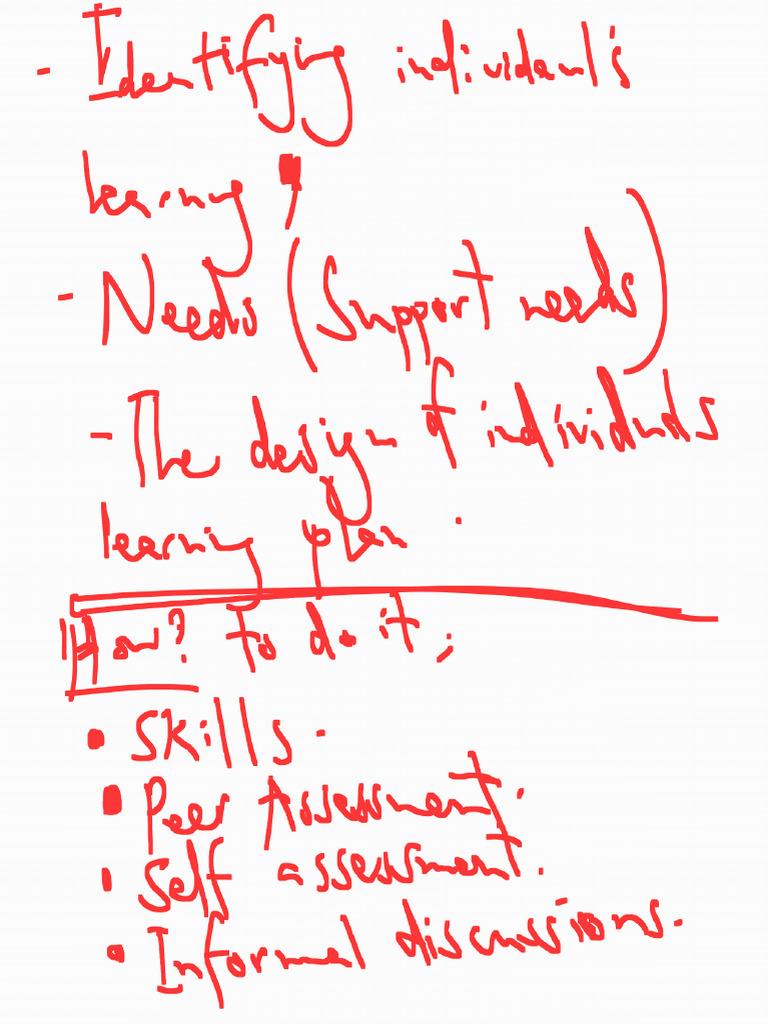 - Identifying individual's
learning,
- Needs (Support needs)
- The design of individuals
learning plan.
How? To do it;
• Skills.
• Peer Assessment.
• Self assessment.
• Informal discussions.